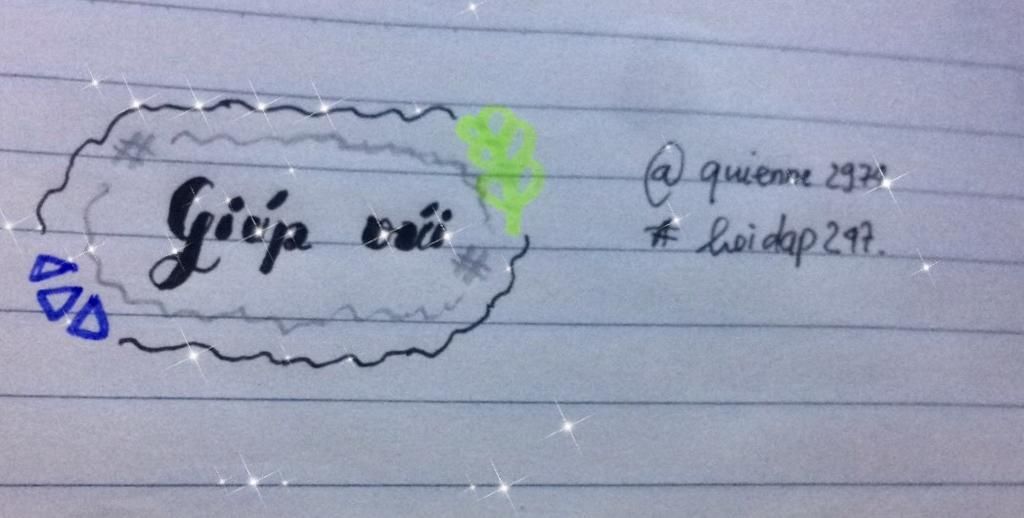 Giúp với
@ quienne 2971
# hoidap247.